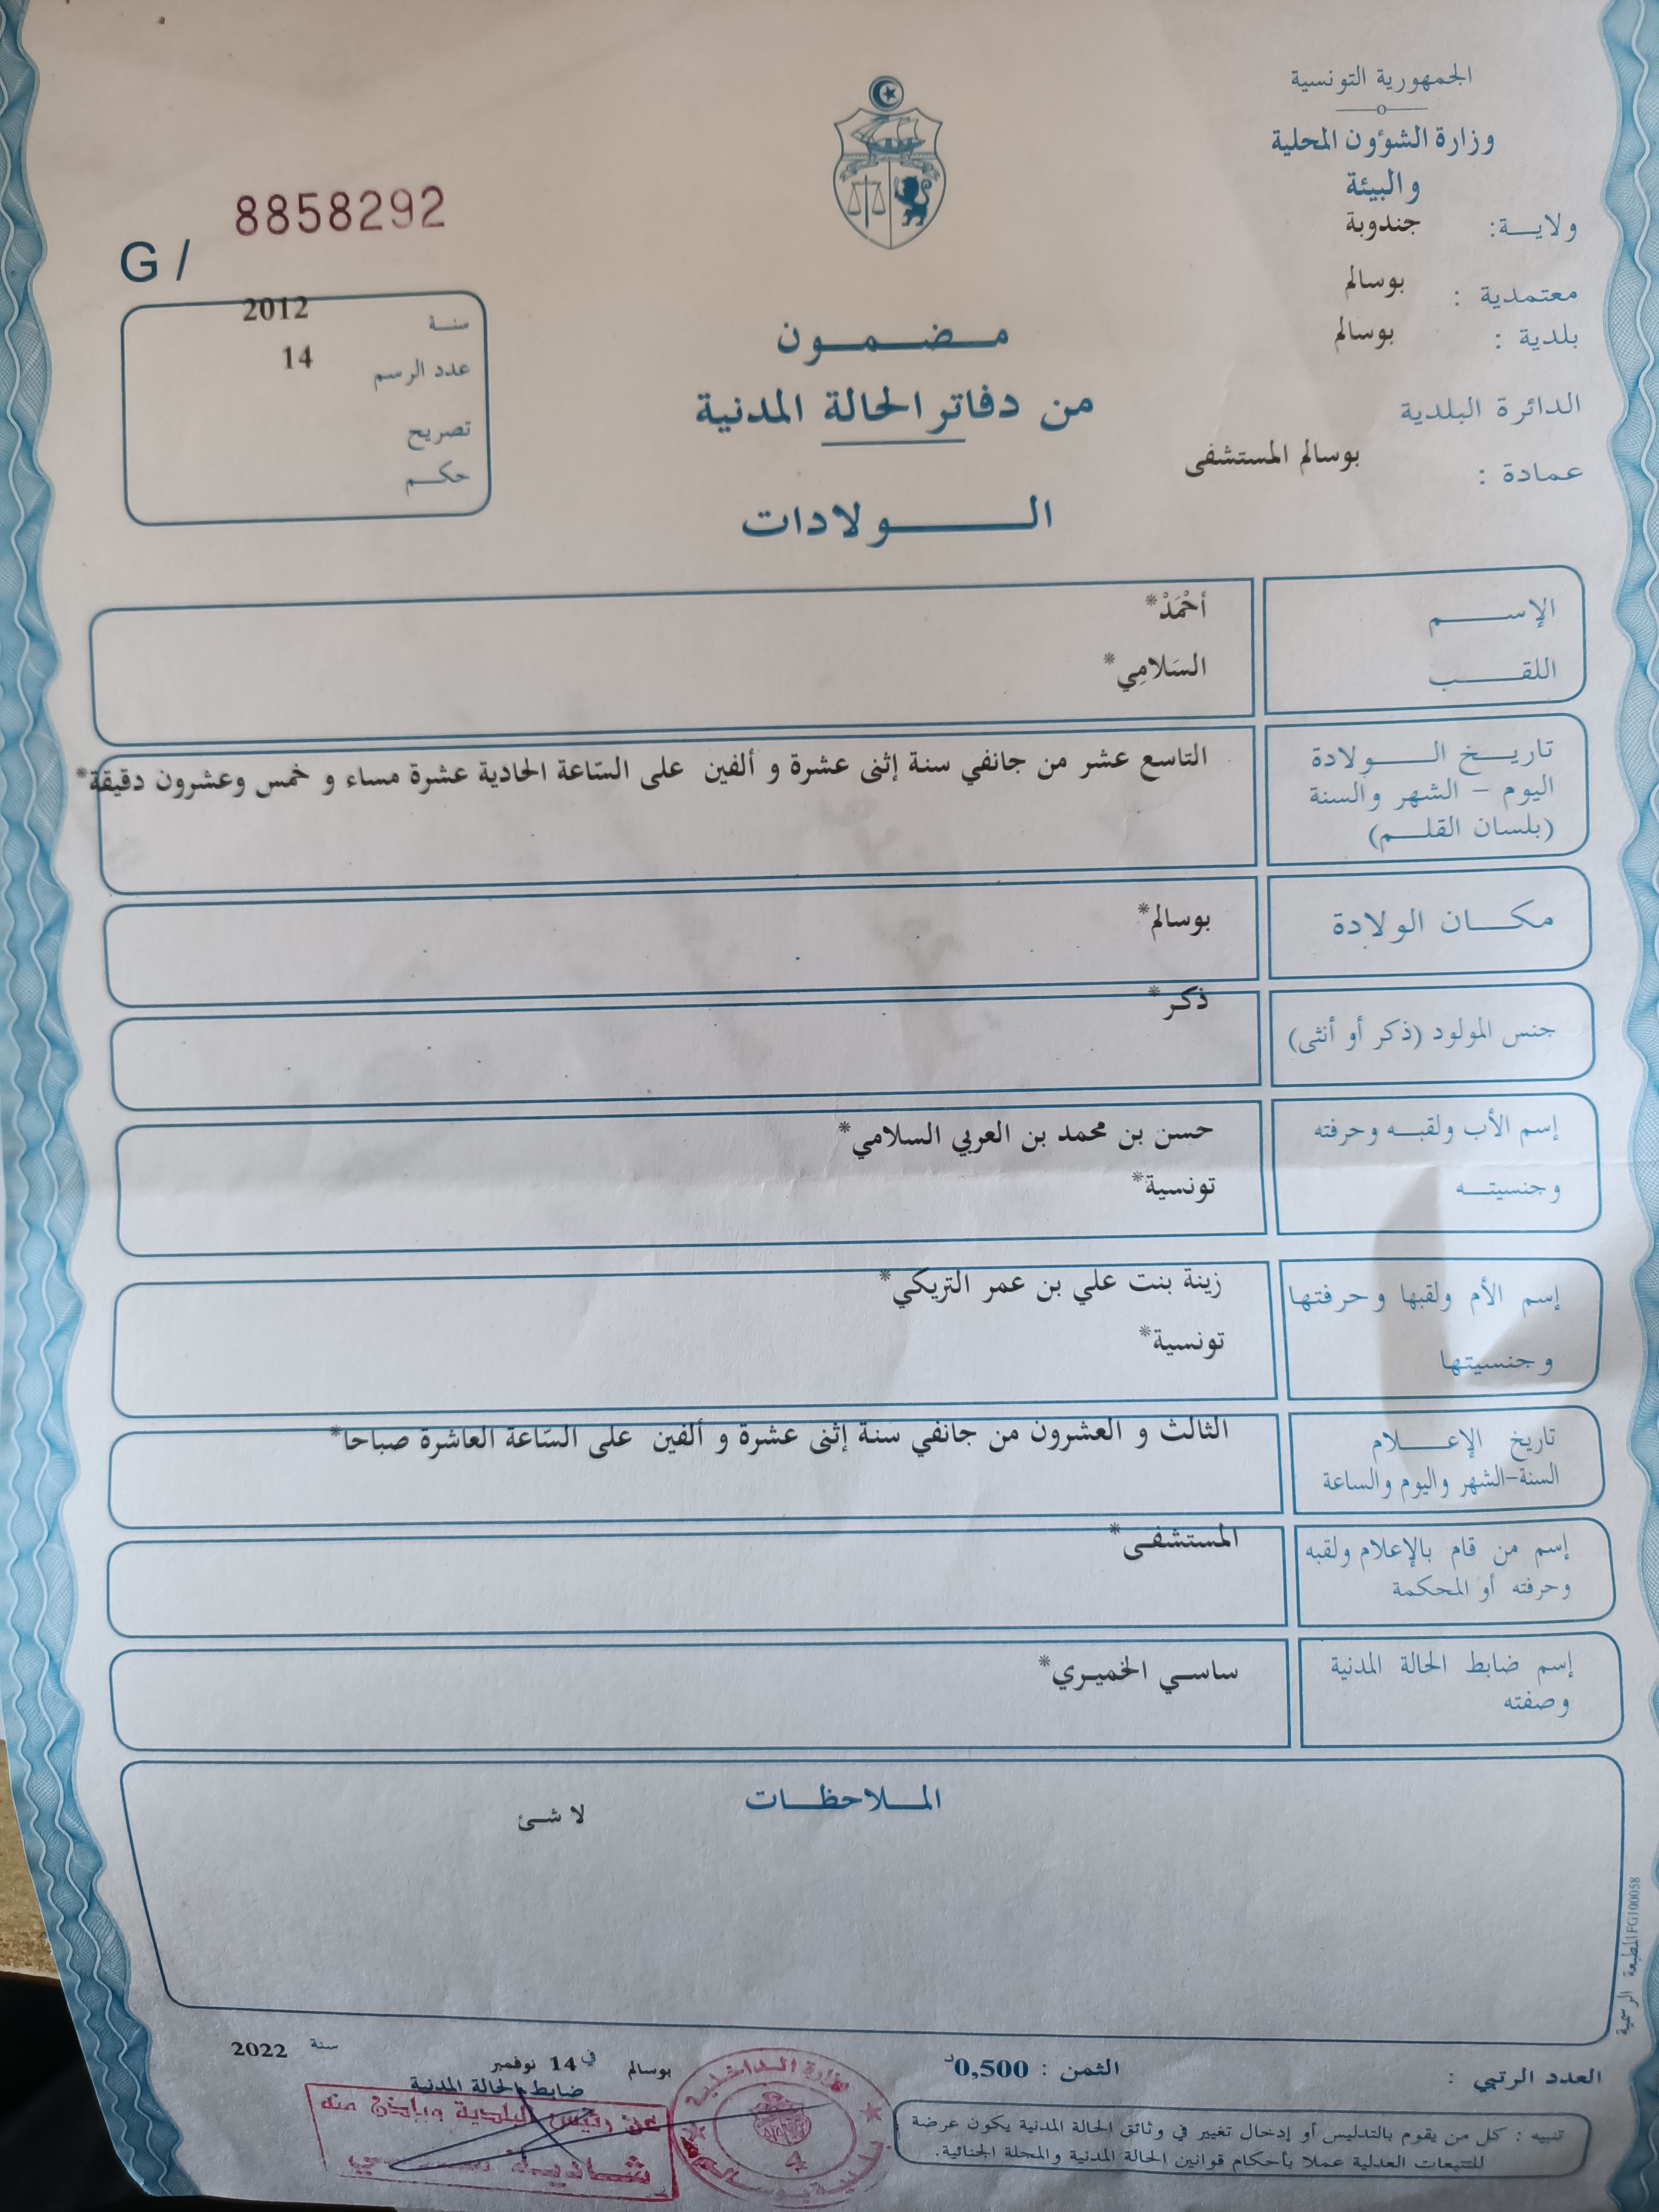 الجمهورية التونسية
وزارة الشؤون المحلية
والبيئة
ولايـــة: جندوبة
معتمدية : بوسالم
بلدية : بوسالم
الدائرة البلدية
عمادة : بوسالم المستشفى
8858292
G /
سنة 2012
عدد الرسم 14
تصريح
حكم
مضمون
من دفاتر الحالة المدنية
الولادات
الإسم أَحْمَدْ*
اللقب السَلامِي*
تاريخ الولادة
اليوم - الشهر والسنة
(بلسان القلم)
التاسع عشر من جانفي سنة إثنى عشرة و ألفين على السّاعة الحادية عشرة مساء و خمس وعشرون دقيقة*
مكان الولادة بوسالم*
جنس المولود (ذكر أو أنثى) ذكر*
إسم الأب ولقبه وحرفته حسن بن محمد بن العربي السلامي*
وجنسيته تونسية*
إسم الأم ولقبها وحرفتها زينة بنت علي بن عمر التريكي*
وجنسيتها تونسية*
تاريخ الإعلام الثالث و العشرون من جانفي سنة إثنى عشرة و ألفين على السّاعة العاشرة صباحا*
السنة-الشهر واليوم والساعة
إسم من قام بالإعلام ولقبه المستشفى*
وحرفته أو المحكمة
إسم ضابط الحالة المدنية ساسي الخميري*
وصفته
الملاحظات
لا شئ
المطبعة الرسمية FG100058
العدد الرتبي :
الثمن : 0,500د
بوسالم في 14 نوفمبر سنة 2022
ضابط الحالة المدنية
عن رئيس البلدية وبإذن منه
شادية
وزارة الداخلية
4
تنبيه : كل من يقوم بالتدليس أو إدخال تغيير في وثائق الحالة المدنية يكون عرضة
للتتبعات العدلية عملا بأحكام قوانين الحالة المدنية والمجلة الجنائية.